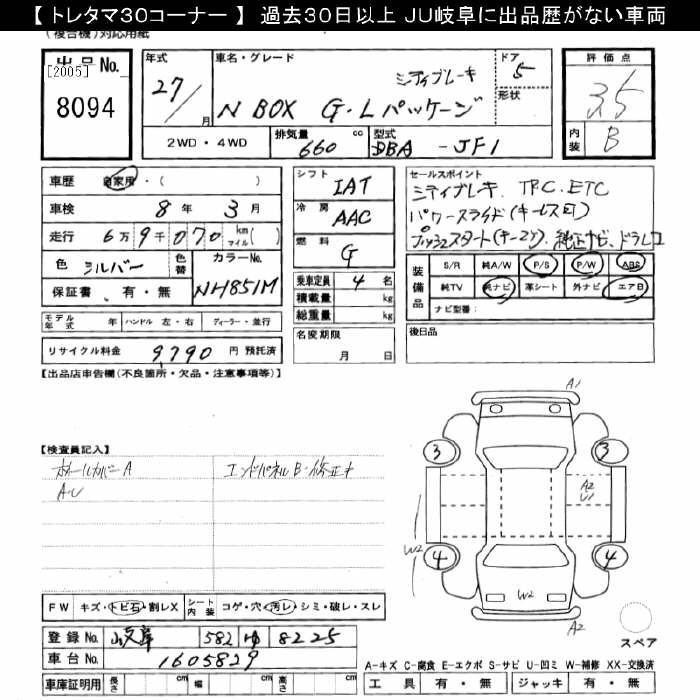 【 トレタマ30コーナー 】 過去30日以上 JU岐阜に出品歴がない車両
(複合機)対応用紙
出品 No. [2005] 8094
年式 27/ 月
車名・グレード シティブレーキ
N BOX G・Lパッケージ
ドア 5
形状
評価点 3.5
内装 B
2WD・4WD
排気量 660 cc
型式 DBA - JF1
車歴 自家用・( )
車検 8年 3月
走行 6万9千070 km マイル( )
色 シルバー 色替 カラーNo. NH851M
保証書 有・無
モデル年式 年 ハンドル 左・右 ディーラー・並行
リサイクル料金 9,790 円 預託済
シフト IAT
冷房 AAC
燃料 G
乗車定員 4 名
積載量 kg
総重量 kg
名変期限 月 日
セールスポイント
シティブレーキ、TRC、ETC
パワースライド(キーレス可)
プッシュスタート(キー2ケ)、純正ナビ、ドラレコ
装備品 S/R 純A/W P/S P/W ABS
純TV 純ナビ 革シート 外ナビ エアB
ナビ型番:
後日品
【出品店申告欄(不良箇所・欠品・注意事項等)】
【検査員記入】
ホイールカバーA
A・U
エンドパネルB・修正キ
A1
3 3
A2
U1
W2
4 4
W2
A2
スペア
FW キズ・トビ石・割レX シート内装 コゲ・穴・汚レ・シミ・破レ・スレ
登録 No. 岐阜 582 ゆ 8225
車台 No. 1605829
車庫証明用 長さ cm 幅 cm 高さ cm
A-キズ C-腐食 E-エクボ S-サビ U-凹ミ W-補修 XX-交換済
工具 有・無 ジャッキ 有・無